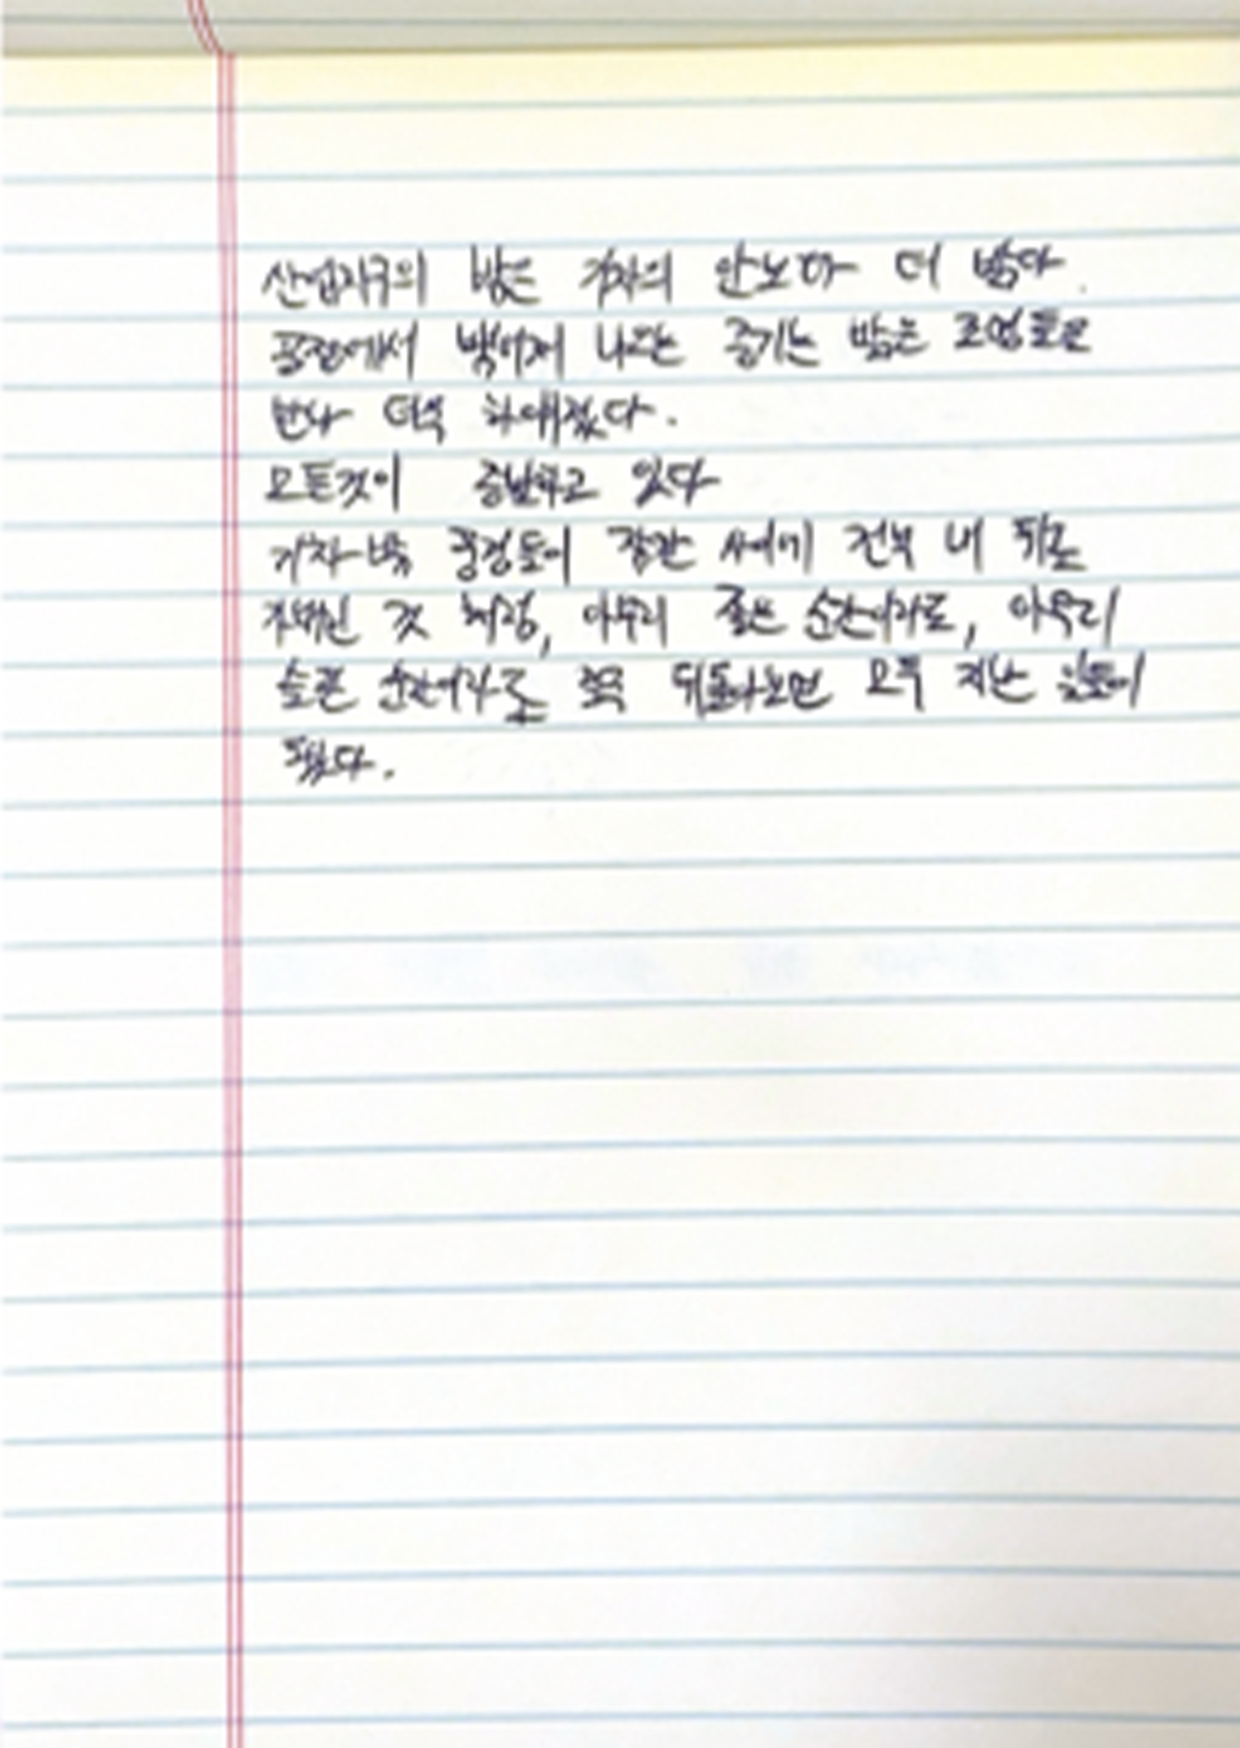 산업지구의 밤은 기차의 안보다 더 밝다.
공장에서 나오는 증기는 밝은 조명들로
더욱 하얘졌다.
모든것이 증발하고 있다
기차 밖 풍경들이 잠깐 새에 전부 내 뒤로
것 처럼, 아무리 좋은 순간이라도, 아무리
슬픈 순간이라도 뒤돌아보면 모두 지난 일들이
됐다.